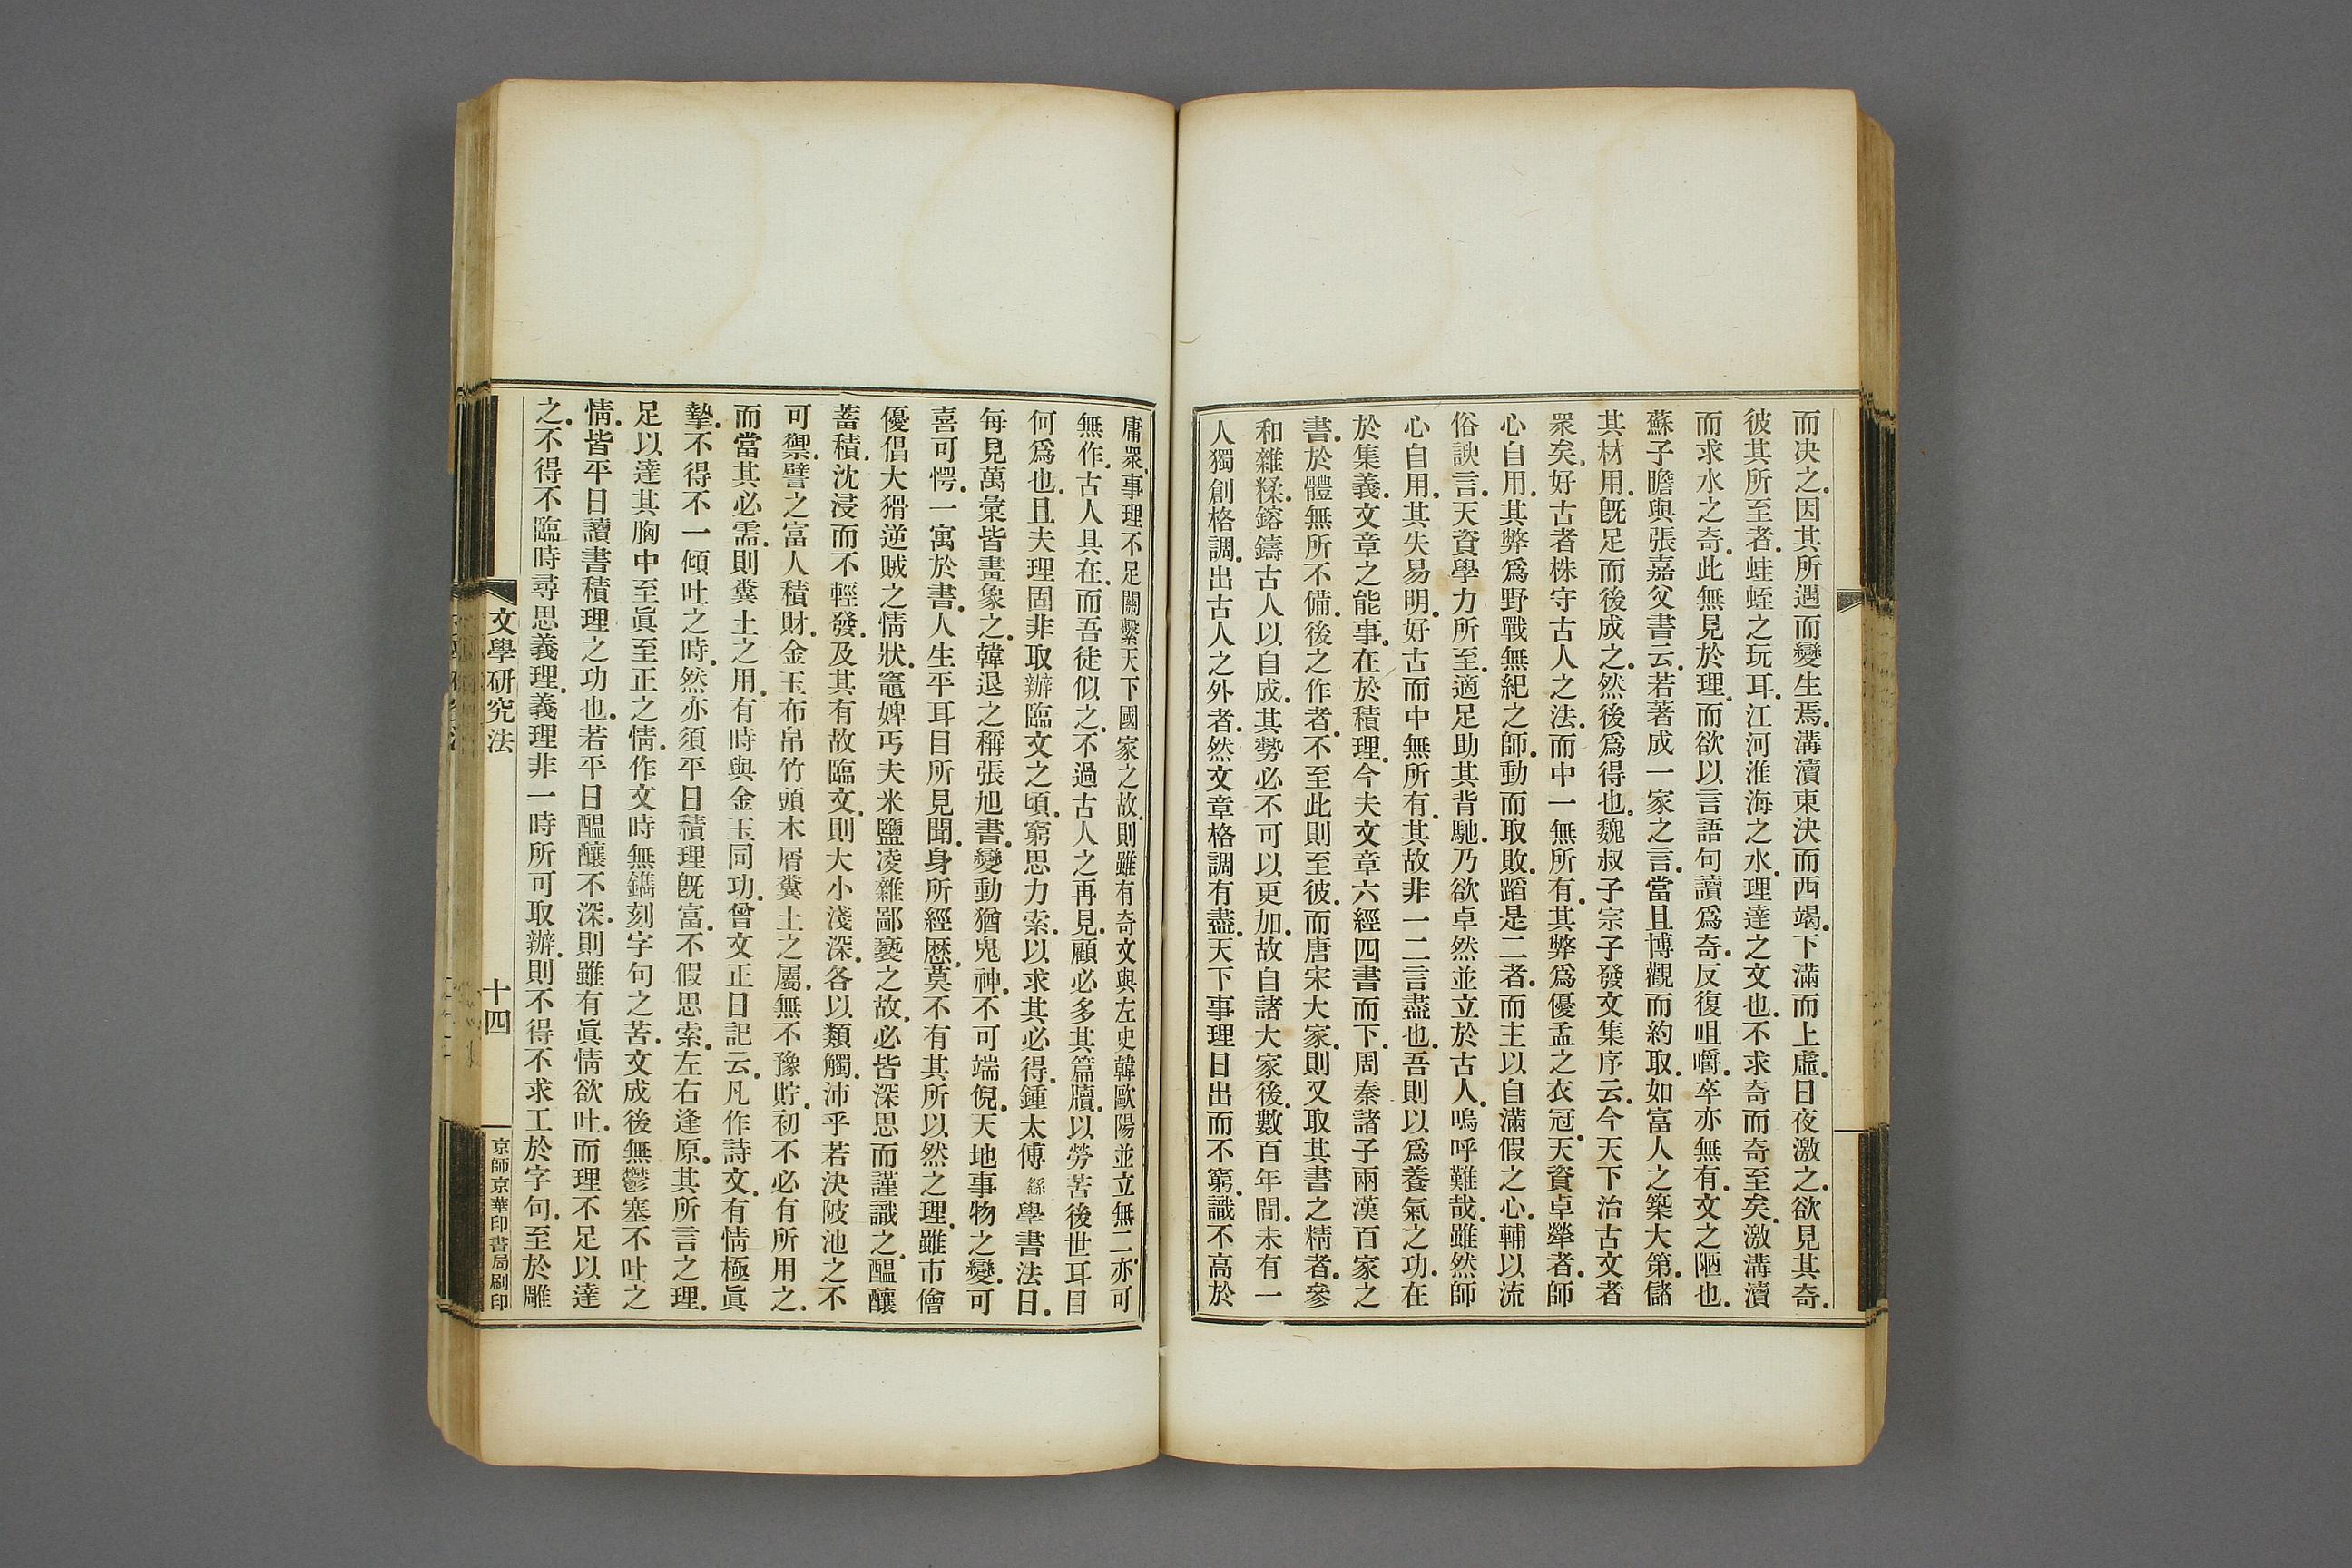 而決之．因其所遇而變生焉．溝瀆東決而西竭．下滿而上虛．日夜激之．欲見其奇．
彼其所至者．蛙蛭之玩耳．江河淮海之水．理達之文也．不求奇而奇至矣．激溝瀆
而求水之奇．此無見於理．而欲以言語句讀爲奇．反復咀嚼．卒亦無有．文之陋也．
蘇子瞻與張嘉父書云．若著成一家之言．當且博觀而約取．如富人之築大第．儲
其材用．旣足而後成之．然後爲得也．魏叔子宗子發文集序云．今天下治古文者
眾矣．好古者株守古人之法．而中一無所有．其弊爲優孟之衣冠．天資卓犖者．師
心自用．其弊爲野戰無紀之師．動而取敗．蹈是二者．而主以自滿假之心．輔以流
俗諛言．天資學力所至．適足助其背馳．乃欲卓然並立於古人．嗚呼難哉．雖然師
心自用．其失易明．好古而中無所有．其故非一二言盡也．吾則以爲養氣之功．在
於集義．文章之能事．在於積理．今夫文章六經四書而下．周秦諸子兩漢百家之
書．於體無所不備．後之作者．不至此則至彼．而唐宋大家．則又取其書之精者．參
和雜糅．鎔鑄古人以自成．其勢必不可以更加．故自諸大家後．數百年間．未有一
人獨創格調．出古人之外者．然文章格調有盡．天下事理日出而不窮．識不高於
庸眾．事理不足關繫天下國家之故．則雖有奇文與左史韓歐陽並立無二．亦可
無作．古人具在．而吾徒似之．不過古人之再見．顧必多其篇牘．以勞苦後世耳目
何爲也．且夫理固非取辦臨文之頃．窮思力索．以求其必得．鍾太傅繇學書法曰．
每見萬彙皆畫象之．韓退之稱張旭書．變動猶鬼神．不可端倪．天地事物之變．可
喜可愕．一寓於書．人生平耳目所見聞．身所經歷．莫不有其所以然之理．雖市儈
優倡大猾逆賊之情狀．竈婢丐夫米鹽凌雜鄙褻之故．必皆深思而謹識之．醞釀
蓄積．沈浸而不輕發．及其有故臨文．則大小淺深．各以類觸．沛乎若決陂池之不
可禦．譬之富人積財．金玉布帛竹頭木屑糞土之屬．無不豫貯．初不必有所用之．
而當其必需．則糞土之用．有時與金玉同功．曾文正日記云．凡作詩文．有情極眞
摯．不得不一傾吐之時．然亦須平日積理旣富．不假思索．左右逢原．其所言之理．
足以達其胸中至眞至正之情．作文時無鐫刻字句之苦．文成後無鬱塞不吐之
情．皆平日讀書積理之功也．若平日醞釀不深．則雖有眞情欲吐．而理不足以達
之．不得不臨時尋思義理．義理非一時所可取辦．則不得不求工於字句．至於雕
文學研究法
十四
京師京華印書局刷印